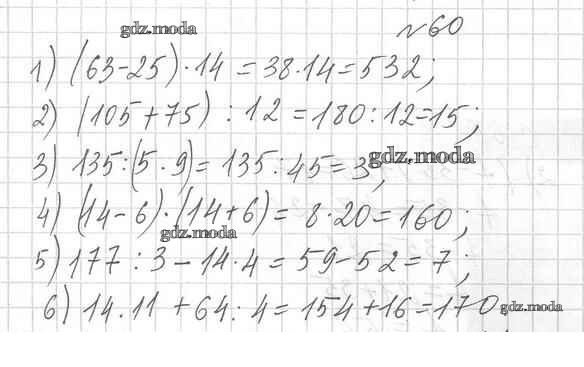 gdz.moda
№60
1) (63-25)·14=38·14=532;
2) (105+75):12=180:12=15;
3) 135:(5·9)=135:45=3; gdz.moda
4) (14-6)·(14+6)=8·20=160;
gdz.moda
5) 177:3-14·4=59-52=7;
6) 14.11+64:4=154+16=170. gdz.moda